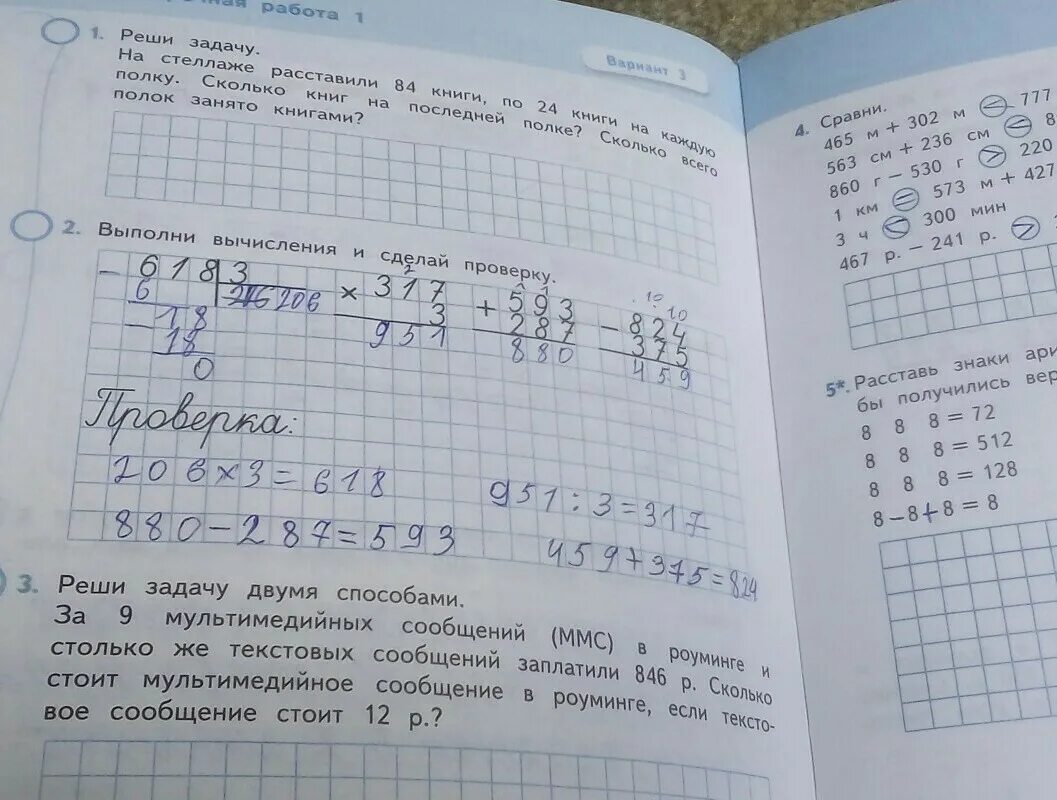 работа 1
Вариант 3
1. Реши задачу.
На стеллаже расставили 84 книги, по 24 книги на каждую
полку. Сколько книг на последней полке? Сколько всего
полок занято книгами?
2. Выполни вычисления и сделай проверку.
618 3
6 206
18
18
0
2
× 317
3
951
+ 593
287
880
10 10
- 824
375
459
Проверка:
206×3=618
951:3=317
880-287=593
459+375=824
3. Реши задачу двумя способами.
За 9 мультимедийных сообщений (ММС) в роуминге и
столько же текстовых сообщений заплатили 846 р. Сколько
стоит мультимедийное сообщение в роуминге, если тексто-
вое сообщение стоит 12 р.?
4. Сравни.
465 м + 302 м < 777
563 см + 236 см < 8
860 г – 530 г > 220
1 км = 573 м + 427
3 ч < 300 мин
467 р. – 241 р. >
5*. Расставь знаки ари
бы получились вер
8 8 8 = 72
8 8 8 = 512
8 8 8 = 128
8-8+8 = 8